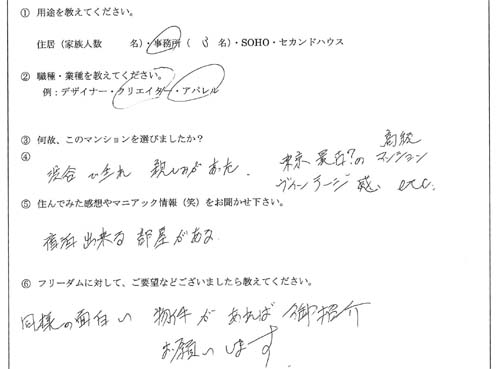 ① 用途を教えてください。
住居（家族人数　　名）・事務所（　3 名）・SOHO・セカンドハウス
② 職種・業種を教えてください。
例：デザイナー・クリエイター・アパレル
③ 何故、このマンションを選びましたか？
④
渋谷で生れ 親しみがあった.
東京最古?の高級マンション
ヴィンテージ感 etc.
⑤ 住んでみた感想やマニアック情報（笑）をお聞かせ下さい。
宿泊出来る部屋がある.
⑥ フリーダムに対して、ご要望などございましたら教えてください。
同様の面白い 物件があれば 御紹介
お願いします.